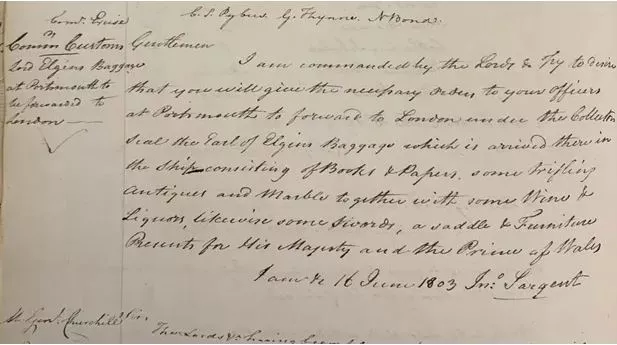 C. S. Pybus. G. Thynne. N Bond.
Com.rs Excise
Comm.rs Customs
Lord Elgins Baggage
at Portsmouth to
be forwarded to
London
Gentlemen
I am commanded by the Lords &c Try to desire
that you will give the necessary orders to your Officers
at Portsmouth to forward to London under the Collectors
seal the Earl of Elgins Baggage which is arrived there in
the Ship consisting of Books & Papers, some trifling
Antiques and Marble together with some Wine &
Liquors, likewise some Swords, a Saddle & Furniture
Presents for His Majesty and the Prince of Wales
I am &c 16 June 1803 Jn.o Sargent
Churchill
Sir,
The Lords &c having